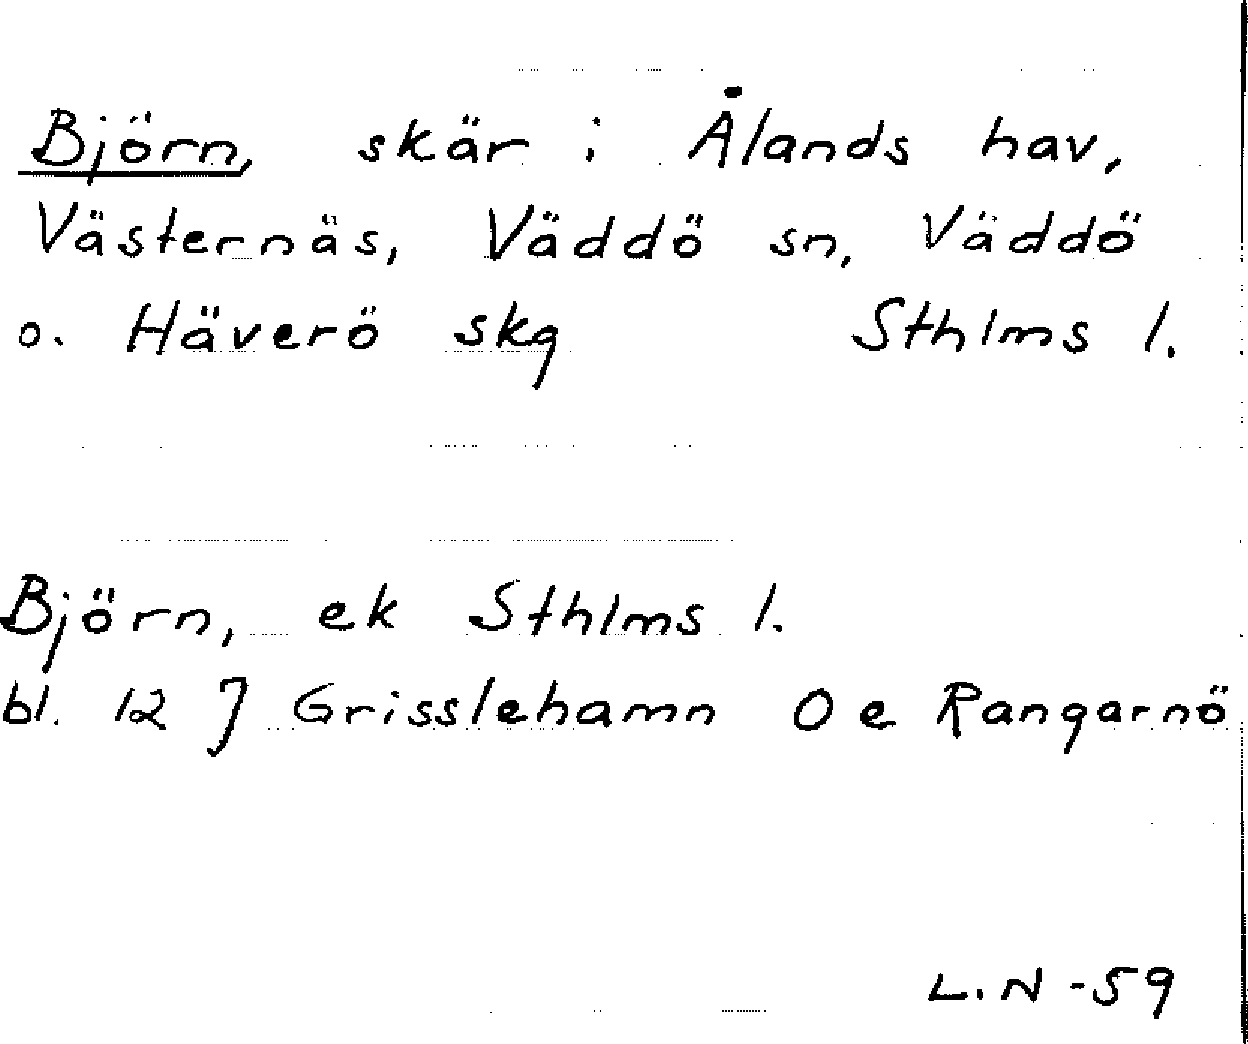 Björn, skär i Ålands hav,
Västernäs, Väddö sn, Väddö
o. Häverö skg Sthlms l.
Björn, ek Sthlms l.
bl. 12 J Grisslehamn O e Rangarnö
L.N -59